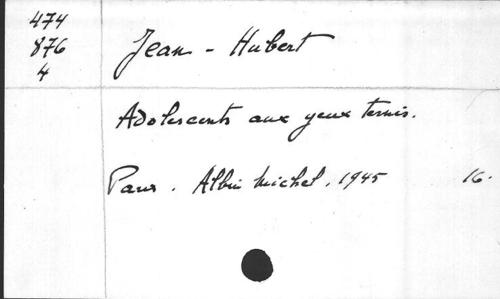 474
876
4
Jean-Hubert
Adolescents aux yeux ternis.
Paris. Albin Michel, 1945 16.